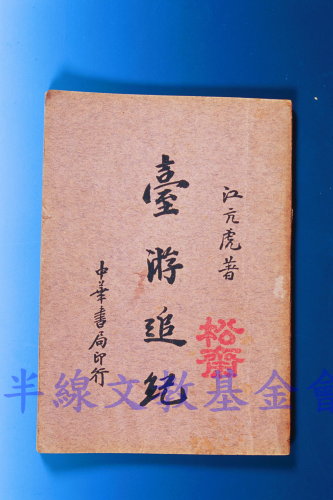 江亢虎著
臺游追紀
中華書局印行
松齋
半線文教基金會